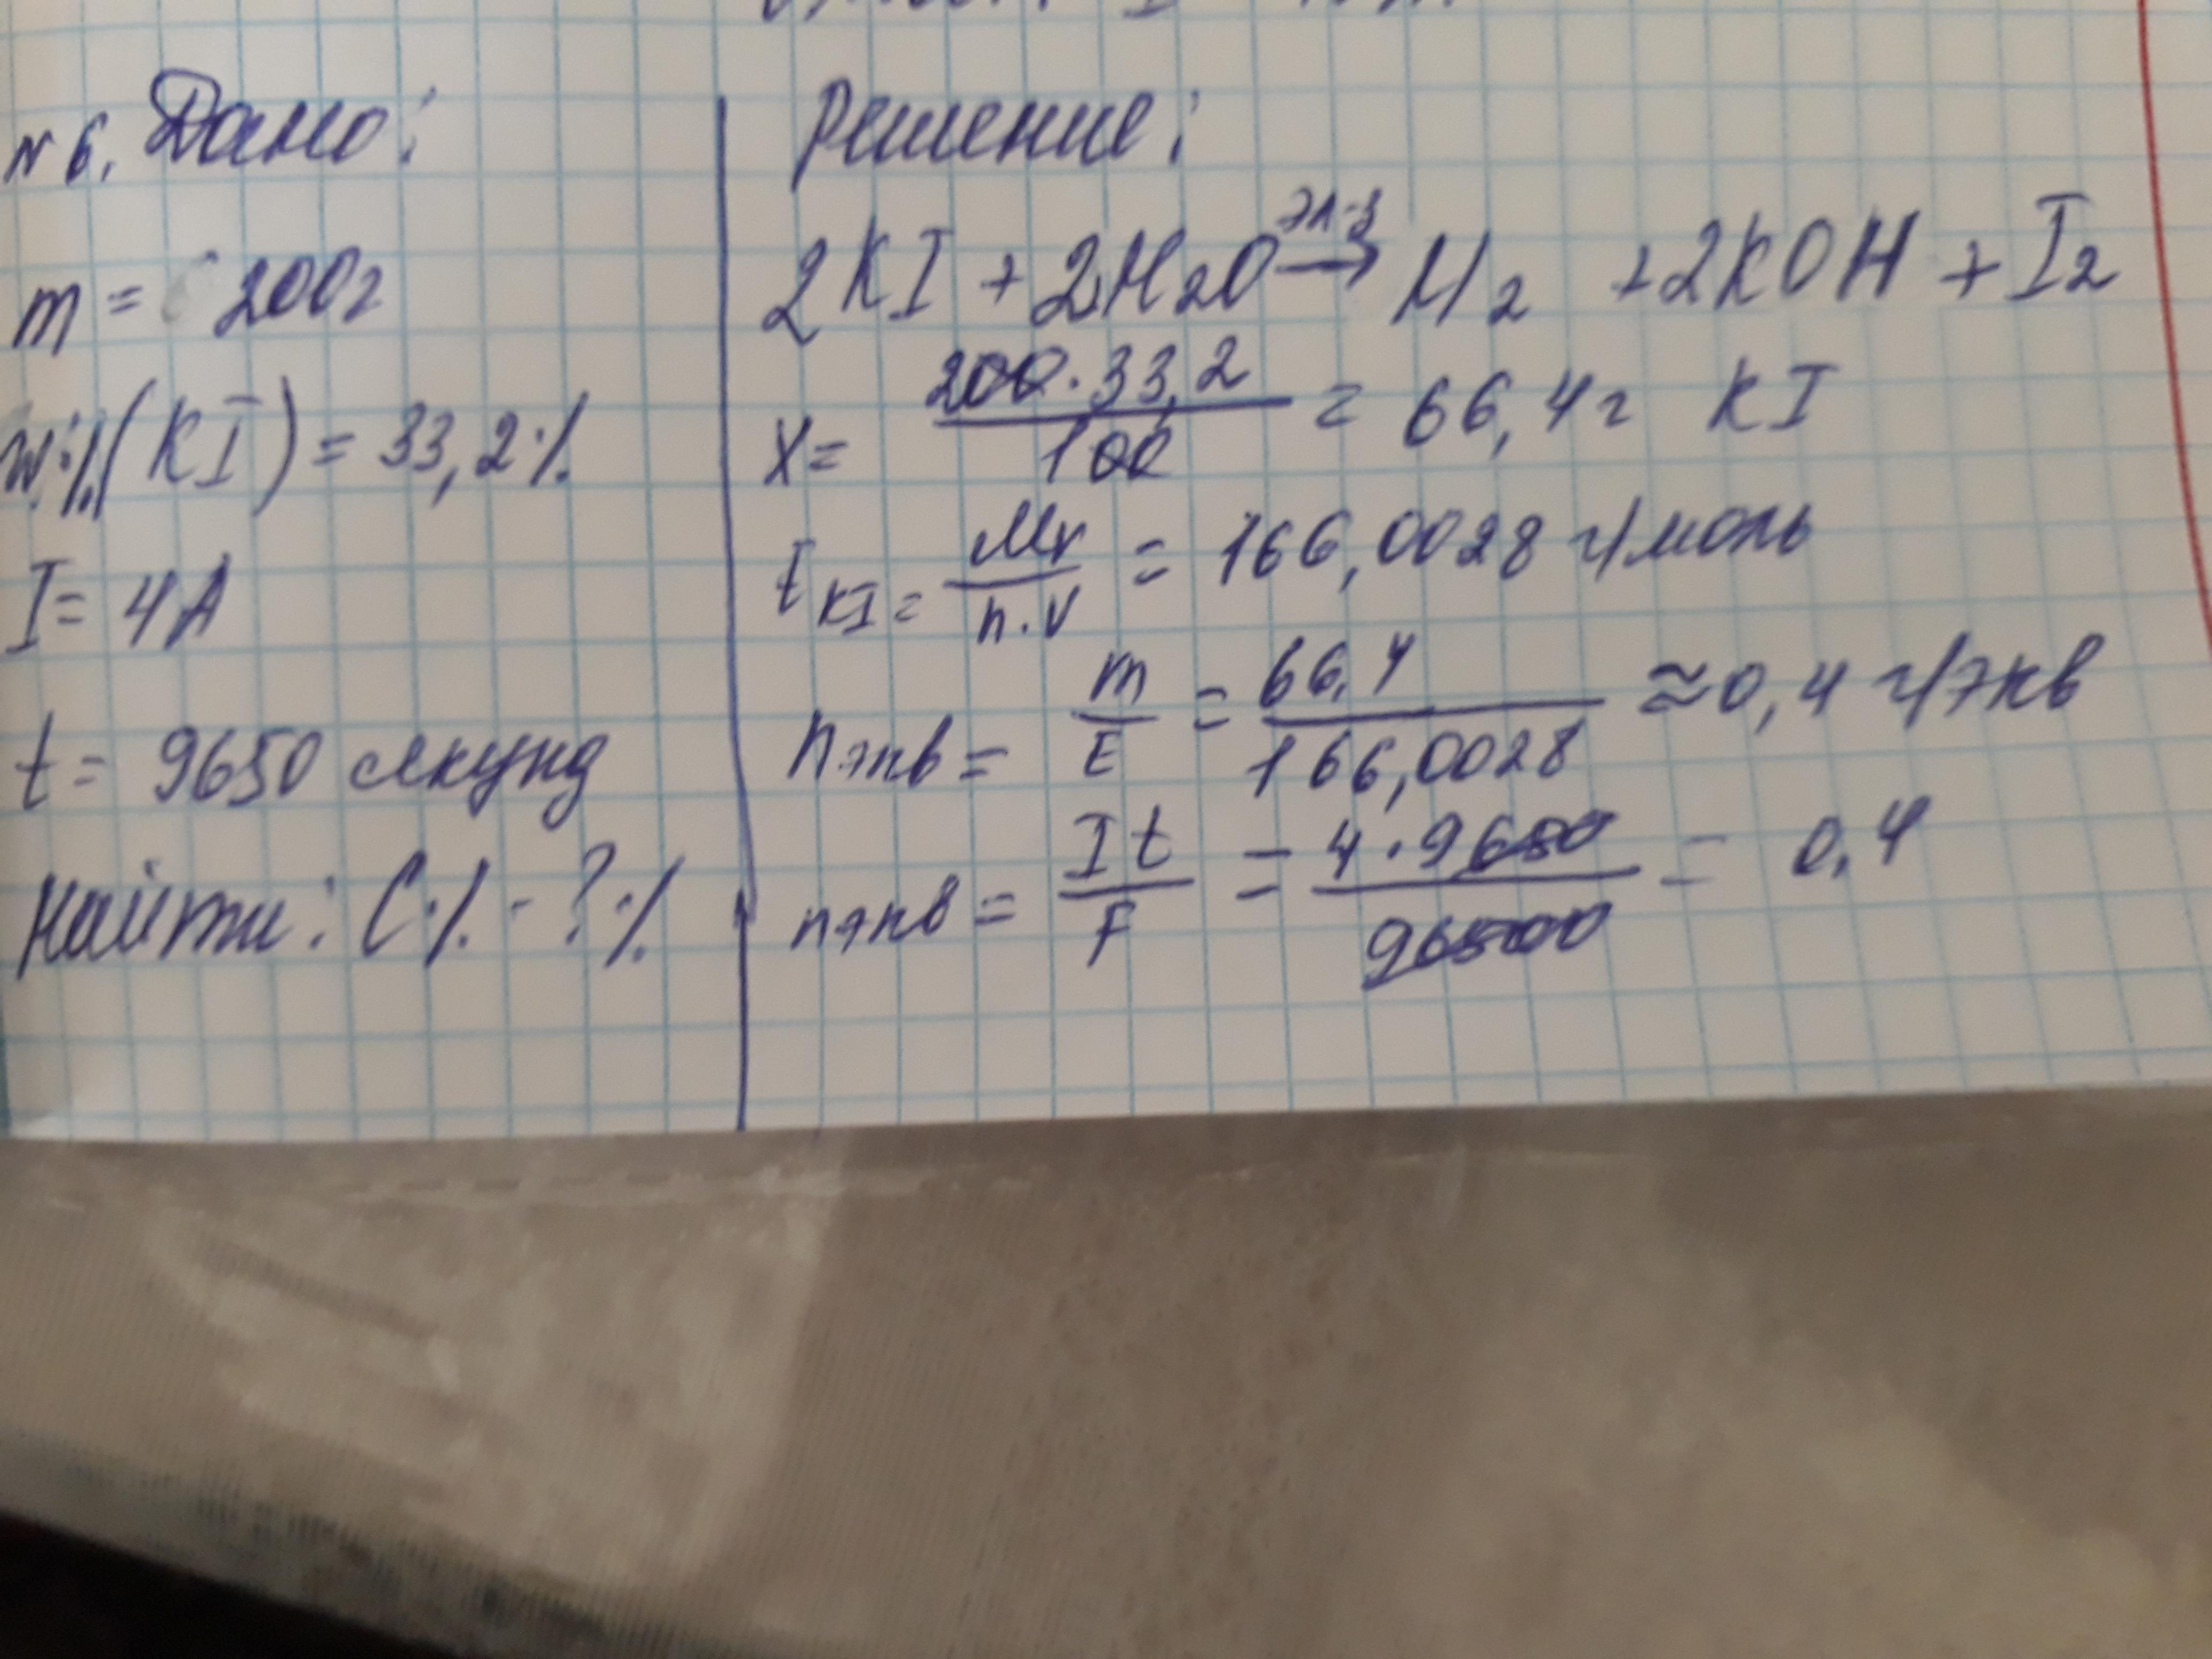 №6. Дано:
m = 200г
W%(KI) = 33,2%
I = 4A
t = 9650 секунд
Найти: C% - ?%
Решение:
2KI + 2H2O эл-з → H2 + 2KOH + I2
X = 200·33,2 / 100 = 66,4г KI
EKI = Mr / n·V = 166,0028 г/моль
nэкв = m / E = 66,4 / 166,0028 ≈ 0,4 г/экв
nэкв = It / F = 4·9650 / 96500 = 0,4